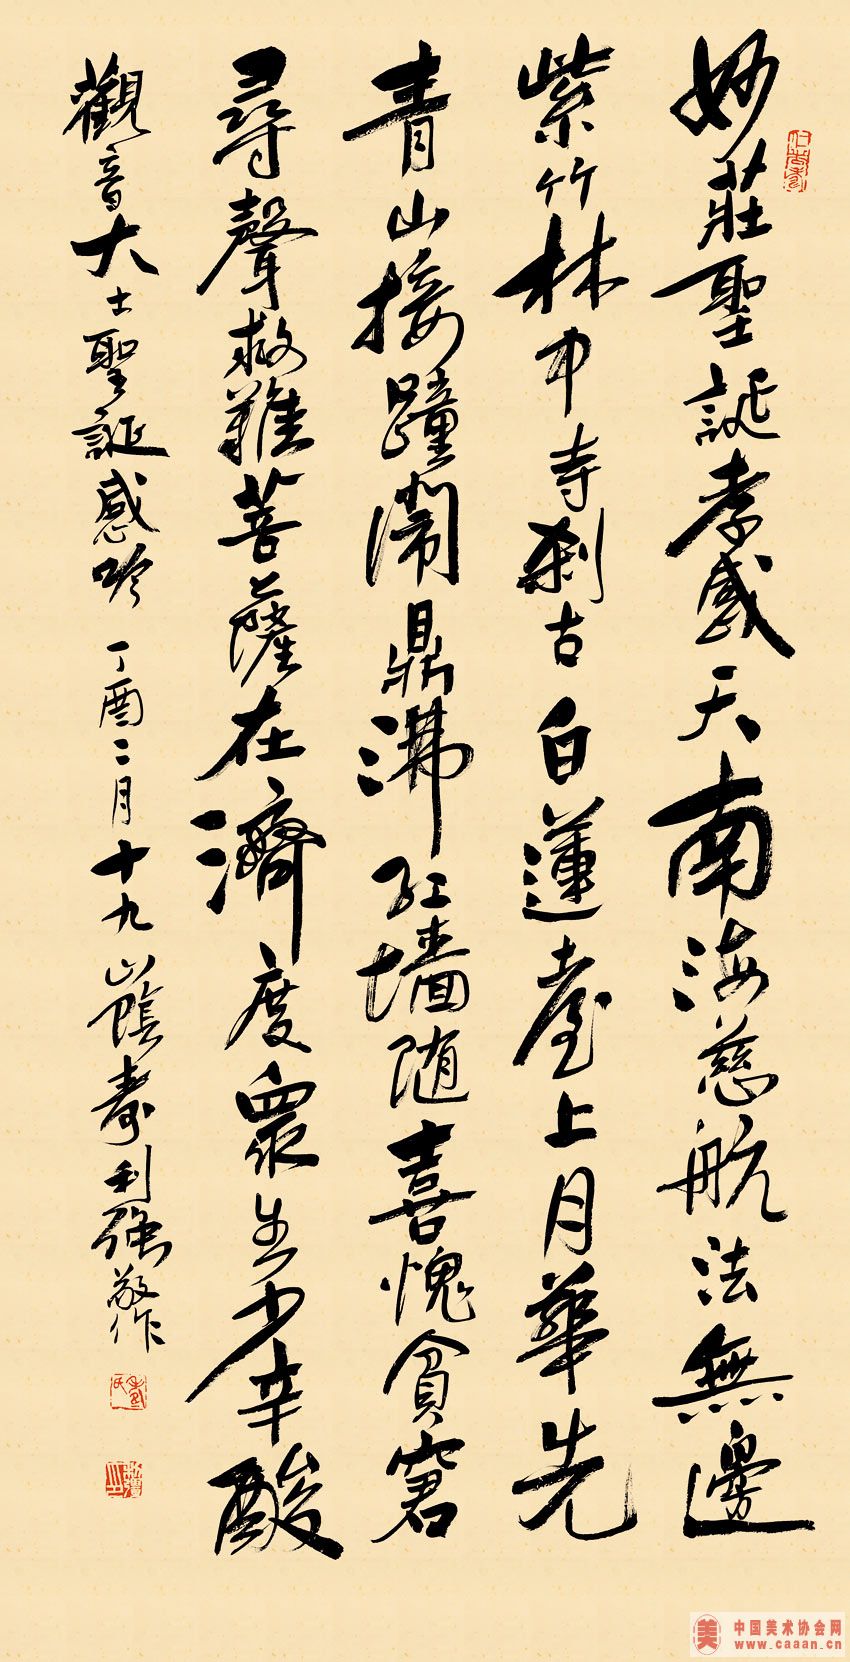 妙莊聖誕孝感天南海慈航法無邊
紫竹林中寺刹古白蓮臺上月華先
青山接踵鬧鼎沸紅墙随喜愧貪窘
尋聲救難菩薩在濟度眾生少辛酸
觀音大士聖誕感吟丁酉二月十九山陰壽利强敬作
中国美术协会网
www.caaan.cn